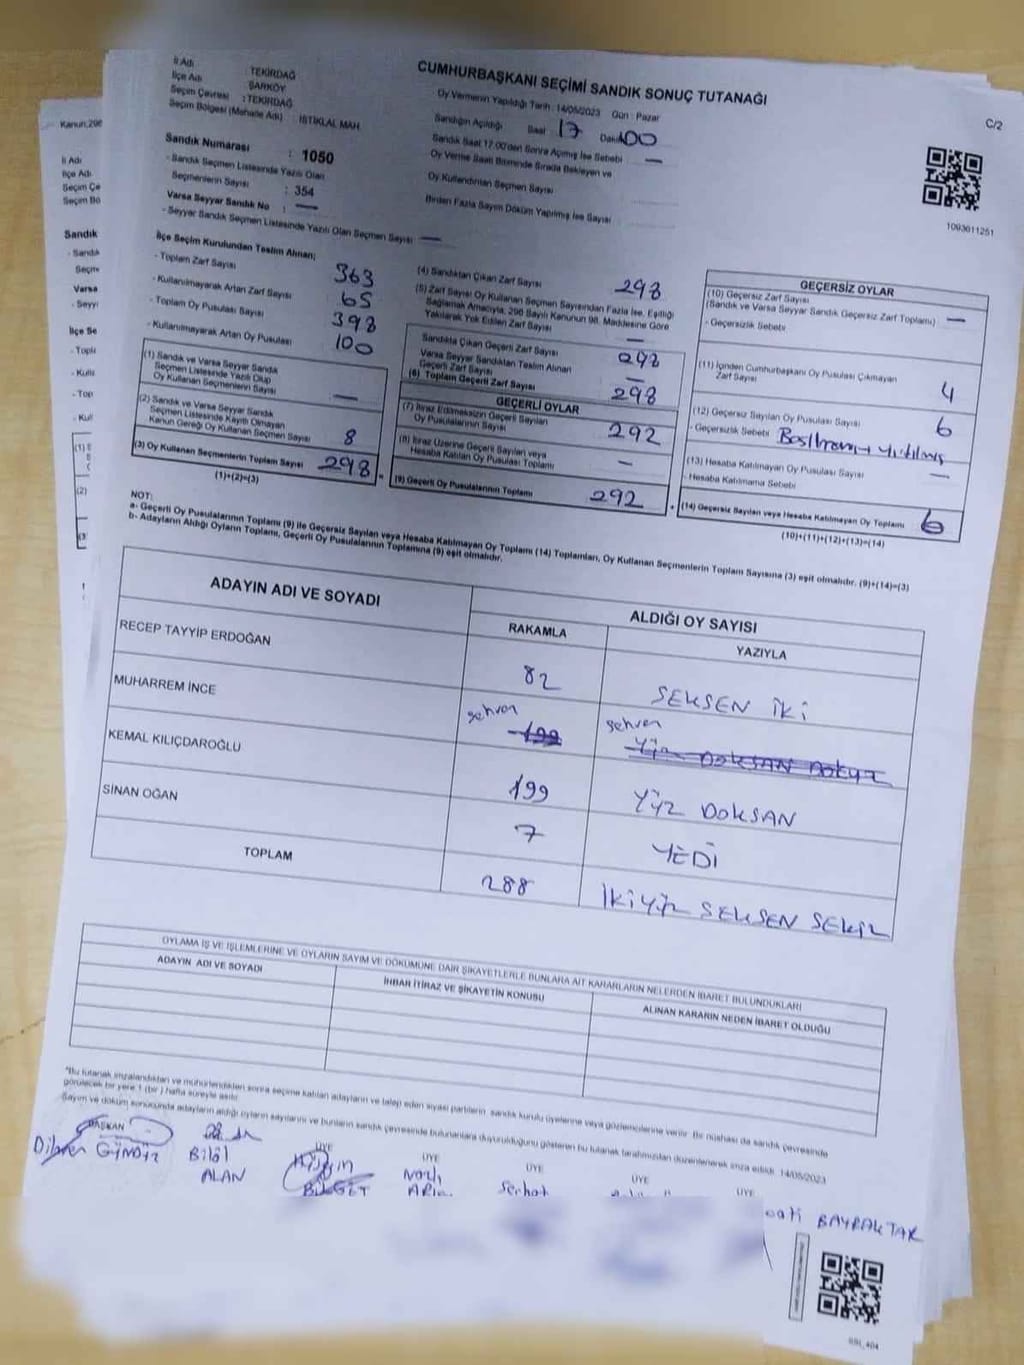 CUMHURBAŞKANI SEÇİMİ SANDIK SONUÇ TUTANAĞI
C/2
İl Adı : TEKİRDAĞ
İlçe Adı ŞARKÖY
Seçim Çevresi : TEKİRDAĞ
Seçim Bölgesi (Mahalle Adı) : İSTİKLAL MAH
Oy Vermenin Yapıldığı Tarih : 14/05/2023 Gün : Pazar
Sandığın Açıldığı Saat 17 Dak 00
Sandık Saat 17.00'den Sonra Açılmış İse Sebebi —
Oy Verme Saati Bitiminde Sırada Bekleyen ve
Oy Kullandırılan Seçmen Sayısı
Birden Fazla Sayım Döküm Yapılmış İse Sayısı
1093611251
Sandık Numarası : 1050
- Sandık Seçmen Listesinde Yazılı Olan
Seçmenlerin Sayısı : 354
Varsa Seyyar Sandık No : —
- Seyyar Sandık Seçmen Listesinde Yazılı Olan Seçmen Sayısı —
İlçe Seçim Kurulundan Teslim Alınan;
- Toplam Zarf Sayısı 363
- Kullanılmayarak Artan Zarf Sayısı 65
- Toplam Oy Pusulası Sayısı 398
- Kullanılmayarak Artan Oy Pusulası 100
(1) Sandık ve Varsa Seyyar Sandık
Seçmen Listesinde Yazılı Olup
Oy Kullanan Seçmenlerin Sayısı —
(2) Sandık ve Varsa Seyyar Sandık
Seçmen Listesinde Kayıtlı Olmayan
Kanun Gereği Oy Kullanan Seçmen Sayısı 8
(3) Oy Kullanan Seçmenlerin Toplam Sayısı 298
(1)+(2)=(3)
(4) Sandıktan Çıkan Zarf Sayısı 298
(5) Zarf Sayısı Oy Kullanan Seçmen Sayısından Fazla İse, Eşitliği
Sağlamak Amacıyla, 298 Sayılı Kanunun 98. Maddesine Göre
Yakılarak Yok Edilen Zarf Sayısı —
Sandıkta Çıkan Geçerli Zarf Sayısı 298
Varsa Seyyar Sandıktan Teslim Alınan
Geçerli Zarf Sayısı —
(6) Toplam Geçerli Zarf Sayısı 298
GEÇERLİ OYLAR
(7) İtiraz Edilmeksizin Geçerli Sayılan
Oy Pusulalarının Sayısı 292
(8) İtiraz Üzerine Geçerli Sayılan veya
Hesaba Katılan Oy Pusulası Toplamı —
(9) Geçerli Oy Pusulalarının Toplamı 292
GEÇERSİZ OYLAR
(10) Geçersiz Zarf Sayısı
(Sandık ve Varsa Seyyar Sandık Geçersiz Zarf Toplamı) —
- Geçersizlik Sebebi
(11) İçinden Cumhurbaşkanı Oy Pusulası Çıkmayan
Zarf Sayısı 4
(12) Geçersiz Sayılan Oy Pusulası Sayısı 6
- Geçersizlik Sebebi
(13) Hesaba Katılmayan Oy Pusulası Sayısı —
- Hesaba Katılmama Sebebi
(14) Geçersiz Sayılan veya Hesaba Katılmayan Oy Toplamı 6
(10)+(11)+(12)+(13)=(14)
NOT:
a- Geçerli Oy Pusulalarının Toplamı (9) ile Geçersiz Sayılan veya Hesaba Katılmayan Oy Toplamı (14) Toplamları, Oy Kullanan Seçmenlerin Toplam Sayısına (3) eşit olmalıdır. (9)+(14)=(3)
b- Adayların Aldığı Oyların Toplamı, Geçerli Oy Pusulalarının Toplamına (9) eşit olmalıdır.
ADAYIN ADI VE SOYADI ALDIĞI OY SAYISI
RAKAMLA YAZIYLA
RECEP TAYYİP ERDOĞAN 82 SEKSEN İKİ
MUHARREM İNCE sehven 199 sehven YÜZ DOKSAN DOKUZ
KEMAL KILIÇDAROĞLU 199 YÜZ DOKSAN
SİNAN OĞAN 7 YEDİ
TOPLAM 288 İKİYÜZ SEKSEN SEKİZ
OYLAMA İŞ VE İŞLEMLERİNE VE OYLARIN SAYIM VE DÖKÜMÜNE DAİR ŞİKAYETLERLE BUNLARA AİT KARARLARIN NELERDEN İBARET BULUNDUKLARI
ADAYIN ADI VE SOYADI İHBAR İTİRAZ VE ŞİKAYETİN KONUSU ALINAN KARARIN NEDEN İBARET OLDUĞU
*Bu tutanak imzalandıktan ve mühürlendikten sonra seçime katılan adayların ve talep eden siyasi partilerin sandık kurulu üyelerine veya gözlemcilerine verilir. Bir nüshası da sandık çevresinde
görülecek bir yere 1 (bir) hafta süreyle asılır.
Sayım ve döküm sonucunda adayların aldığı oyların sayılarını ve bunların sandık çevresinde bulunanlara duyurulduğunu gösteren bu tutanak tarafımızdan düzenlenerek imza edildi. 14/05/2023
BAŞKAN ÜYE ÜYE ÜYE ÜYE ÜYE
GÜNDÜZ Bilal Serhat
ALAN
BAYRAKTAR
Kanun, 298
İl Adı
İlçe Adı
Seçim Çe
Seçim Bö
Sandık
- Sandık
Seçme
Varsa
- Seyy
İlçe Se
- Topl
- Kull
- Top
- Kul
(1)
(2)